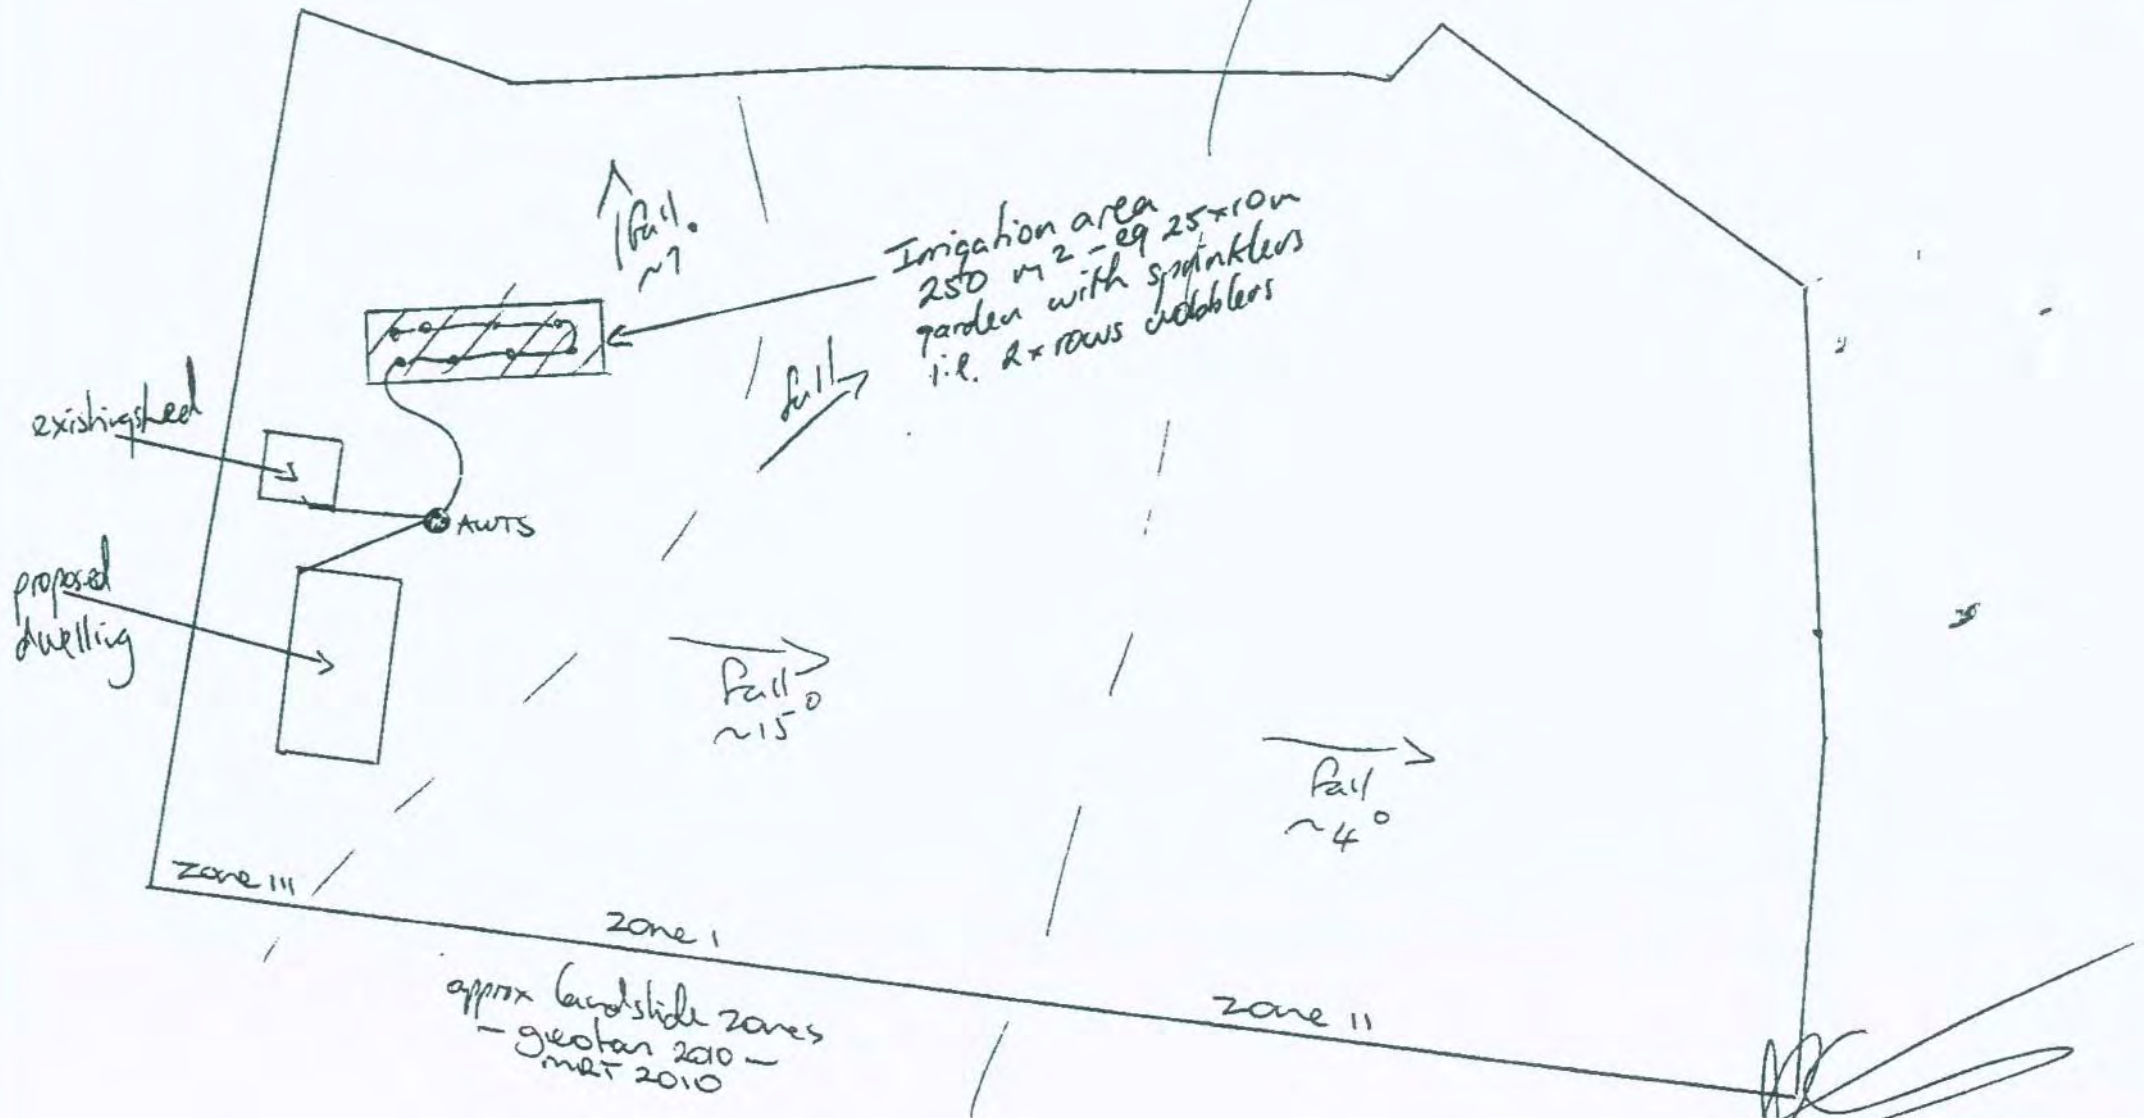 fall.
~7
Irrigation area
250 m² - eg 25x10m
garden with sprinklers
i.e. 2x rows wobblers
fall
existing shed
AWTS
proposed
dwelling
fall
~15°
fall
~4°
zone III
zone I
zone II
approx landslide zones
- geotan 2010 -
MRT 2010